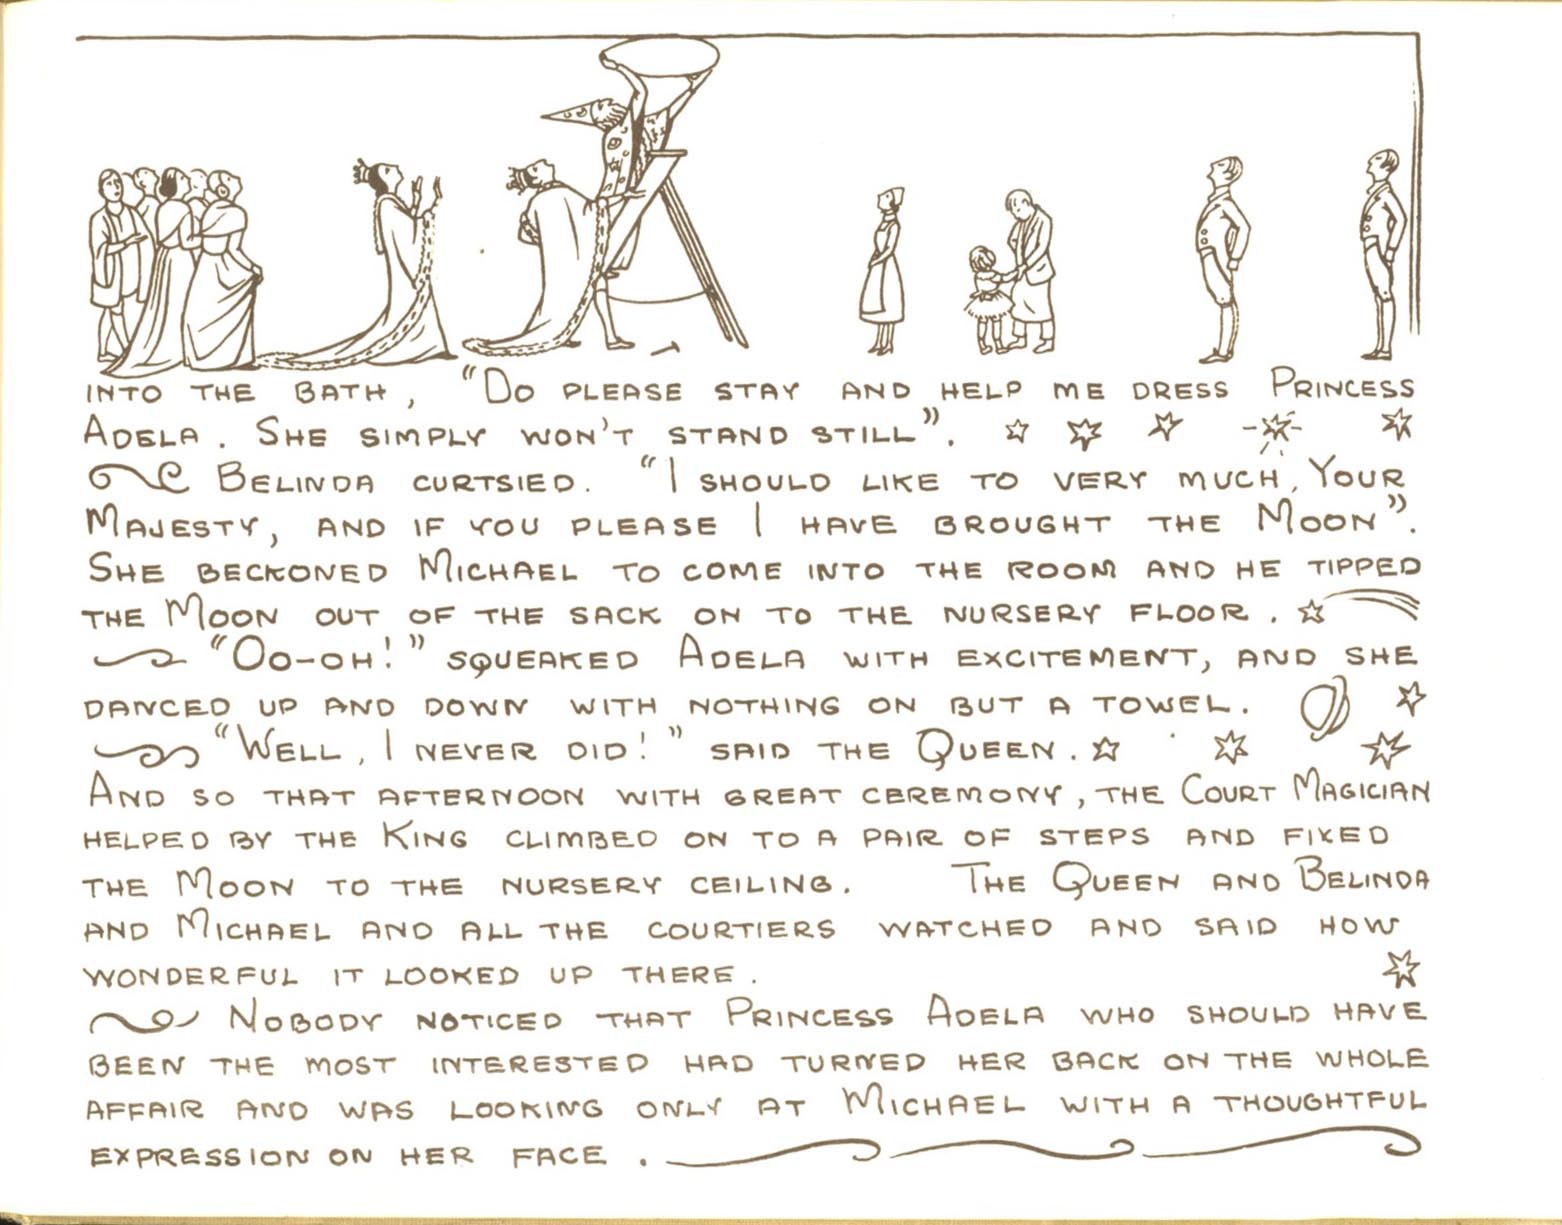 INTO THE BATH, "DO PLEASE STAY AND HELP ME DRESS PRINCESS
ADELA. SHE SIMPLY WON'T STAND STILL".
BELINDA CURTSIED. "I SHOULD LIKE TO VERY MUCH, YOUR
MAJESTY, AND IF YOU PLEASE I HAVE BROUGHT THE MOON".
SHE BECKONED MICHAEL TO COME INTO THE ROOM AND HE TIPPED
THE MOON OUT OF THE SACK ON TO THE NURSERY FLOOR.
"OO-OH!" SQUEAKED ADELA WITH EXCITEMENT, AND SHE
DANCED UP AND DOWN WITH NOTHING ON BUT A TOWEL.
"WELL, I NEVER DID!" SAID THE QUEEN.
AND SO THAT AFTERNOON WITH GREAT CEREMONY, THE COURT MAGICIAN
HELPED BY THE KING CLIMBED ON TO A PAIR OF STEPS AND FIXED
THE MOON TO THE NURSERY CEILING. THE QUEEN AND BELINDA
AND MICHAEL AND ALL THE COURTIERS WATCHED AND SAID HOW
WONDERFUL IT LOOKED UP THERE.
NOBODY NOTICED THAT PRINCESS ADELA WHO SHOULD HAVE
BEEN THE MOST INTERESTED HAD TURNED HER BACK ON THE WHOLE
AFFAIR AND WAS LOOKING ONLY AT MICHAEL WITH A THOUGHTFUL
EXPRESSION ON HER FACE.